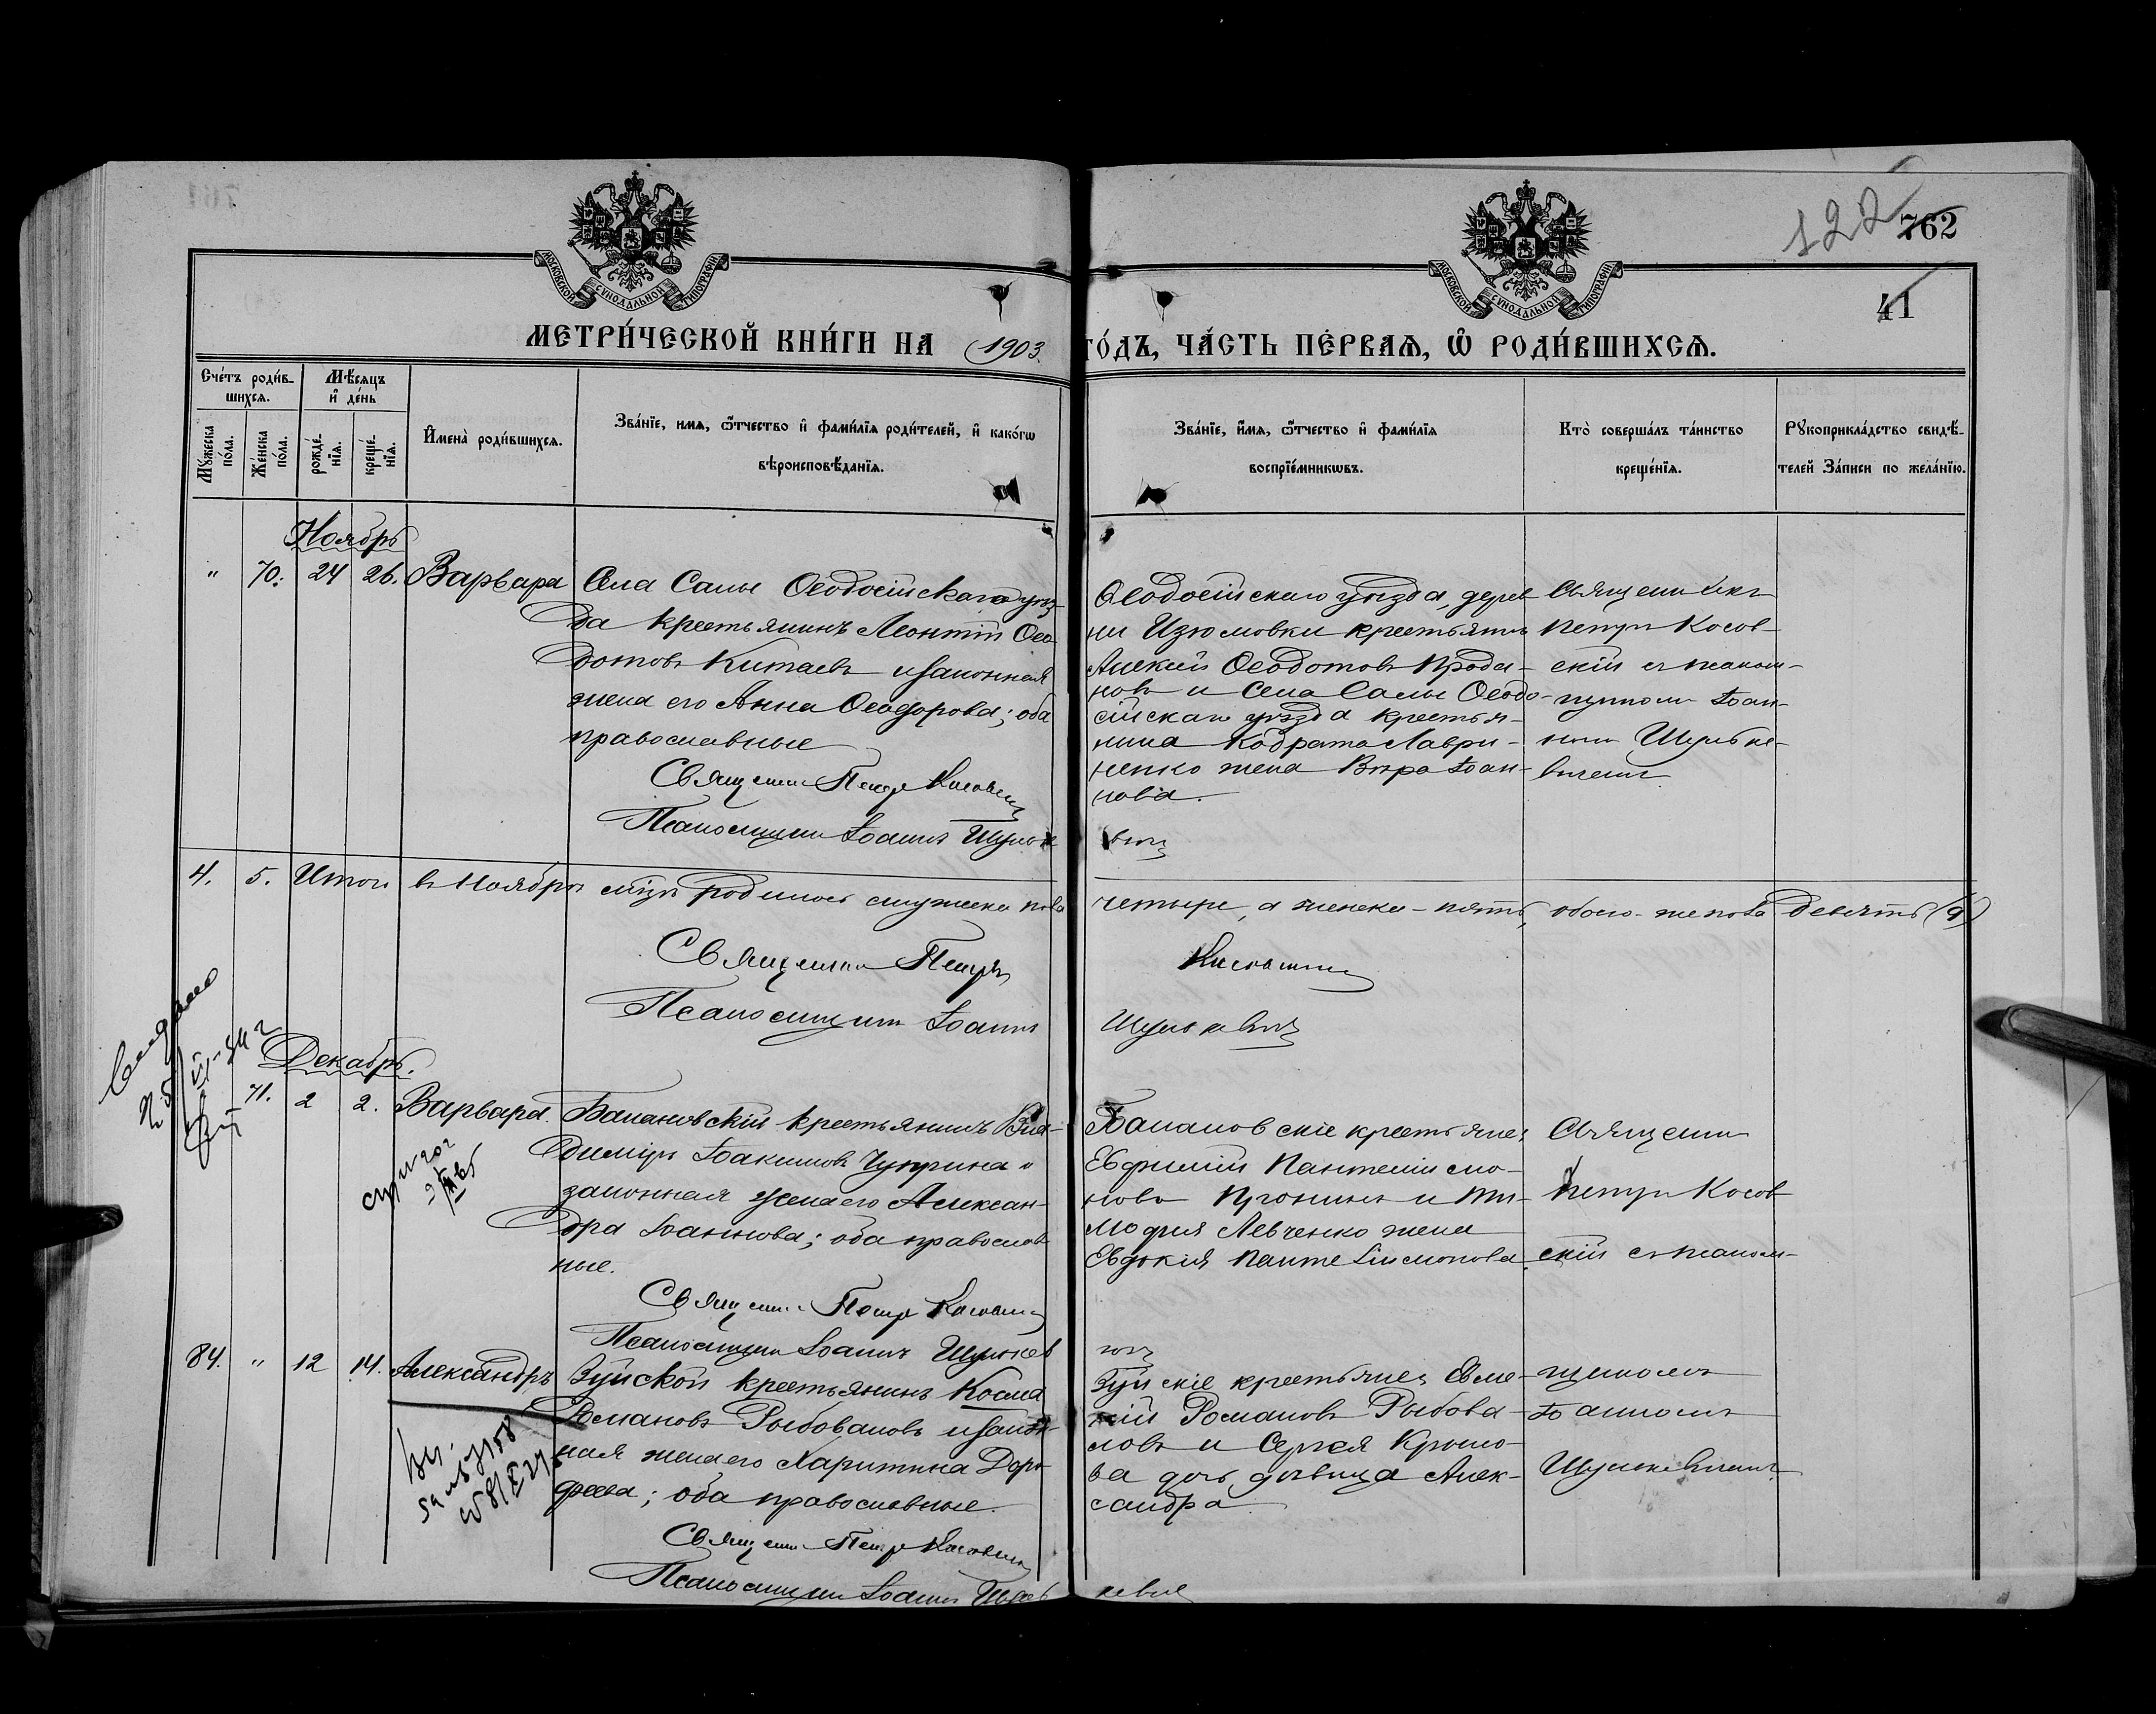 122
762
41
МОСКОВСКОЙ СУНОДАЛЬНОЙ ТИПОГРАФІИ
МОСКОВСКОЙ СУНОДАЛЬНОЙ ТИПОГРАФІИ
МЕТРИ́ЧЕСКОЙ КНИ́ГИ НА 1903. ГО́ДЪ, ЧА́СТЬ ПЕ́РВАѦ, Ѡ҆ РОДИ́ВШИХСѦ.
Сче́тъ роди́в-
шихсѧ.
Мѣ́сѧцъ
и҆ де́нь
Мꙋ́жеска по́ла.
Же́нска по́ла.
рожде́-
нїѧ.
креще́-
нїѧ.
И҆мена̀ роди́вшихсѧ.
Зва́нїе, имѧ, ѻ҆́тчество и҆ фами́лїѧ роди́телей, и҆ како́гѡ
вѣроисповѣ́данїѧ.
Зва́нїе, и҆́мѧ, ѻ҆́тчество и҆ фами́лїѧ
воспрїе́мникѡвъ.
Кто̀ соверша́лъ та́инство
креще́нїѧ.
Рꙋкоприкла́дство свидѣ́-
телей За́писи по жела́нїю.
Ноябрь
" 70. 24 26. Варвара
Села Салы Ѳеодосійскаго уѣз-
да крестьянинъ Леонтій Ѳео-
дотовъ Китаевъ и законная
жена его Анна Ѳеодорова; оба
православные
Священн. Петръ Косовск
Псаломщикъ Іоаннъ Шульке
вичъ
Ѳеодосійскаго уѣзда, дерев-
ни Изюмовки крестьянинъ
Алексій Ѳеодотовъ Прода-
новъ и села Салы Ѳеодо-
сійскаго уѣзда крестья-
нина Кодрата Лаври-
ненко жена Вѣра Іоан-
нова.
Священникъ
Петръ Косов-
скій съ псалом-
щикомъ Іоан-
номъ Шульке-
вичемъ
4. 5. Итого въ Ноябрѣ м-цѣ родилось мужеска пола четыре, а женска - пять, обоего же пола девять (9)
Священникъ Петръ Косовскій
Псаломщикъ Іоаннъ Шулькевичъ
Декабрь.
71. 2 2. Варвара.
Бахановскій крестьянинъ Вла-
диміръ Іоакимовъ Чуприна и
законная жена его Алексан-
дра Іоаннова; оба православ-
ные.
Священн. Петръ Косовск
Псаломщикъ Іоаннъ Шулькев
ичъ
крестьяне:
Евфимій Пантелімо-
новъ Пронинъ и Ти-
моѳея Левченко жена
Евдокія Пантелімонова.
Священн.
Петръ Косов-
скій съ псалом-
84. " 12 14. Александръ
Зуйской крестьянинъ Косма
Романовъ Рыбоваловъ и закон-
ная жена его Харитина Доро-
ѳеева; оба православные.
Священн. Петръ Косовск
Псаломщикъ Іоаннъ Шуль
кевич
Зуйскіе крестьяне: Евме-
ній Романовъ Рыбова-
ловъ и Сергѣя Крыло-
ва дочь дѣвица Алек-
сандра.
щикомъ
Іоанномъ
Шулькевичемъ.